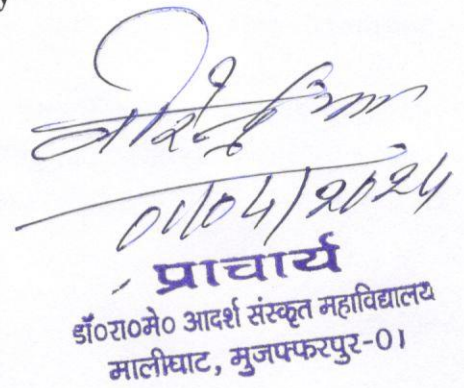 01/04/2024
प्राचार्य
डॉ०रा०मे० आदर्श संस्कृत महाविद्यालय
मालीघाट, मुजफ्फरपुर-01